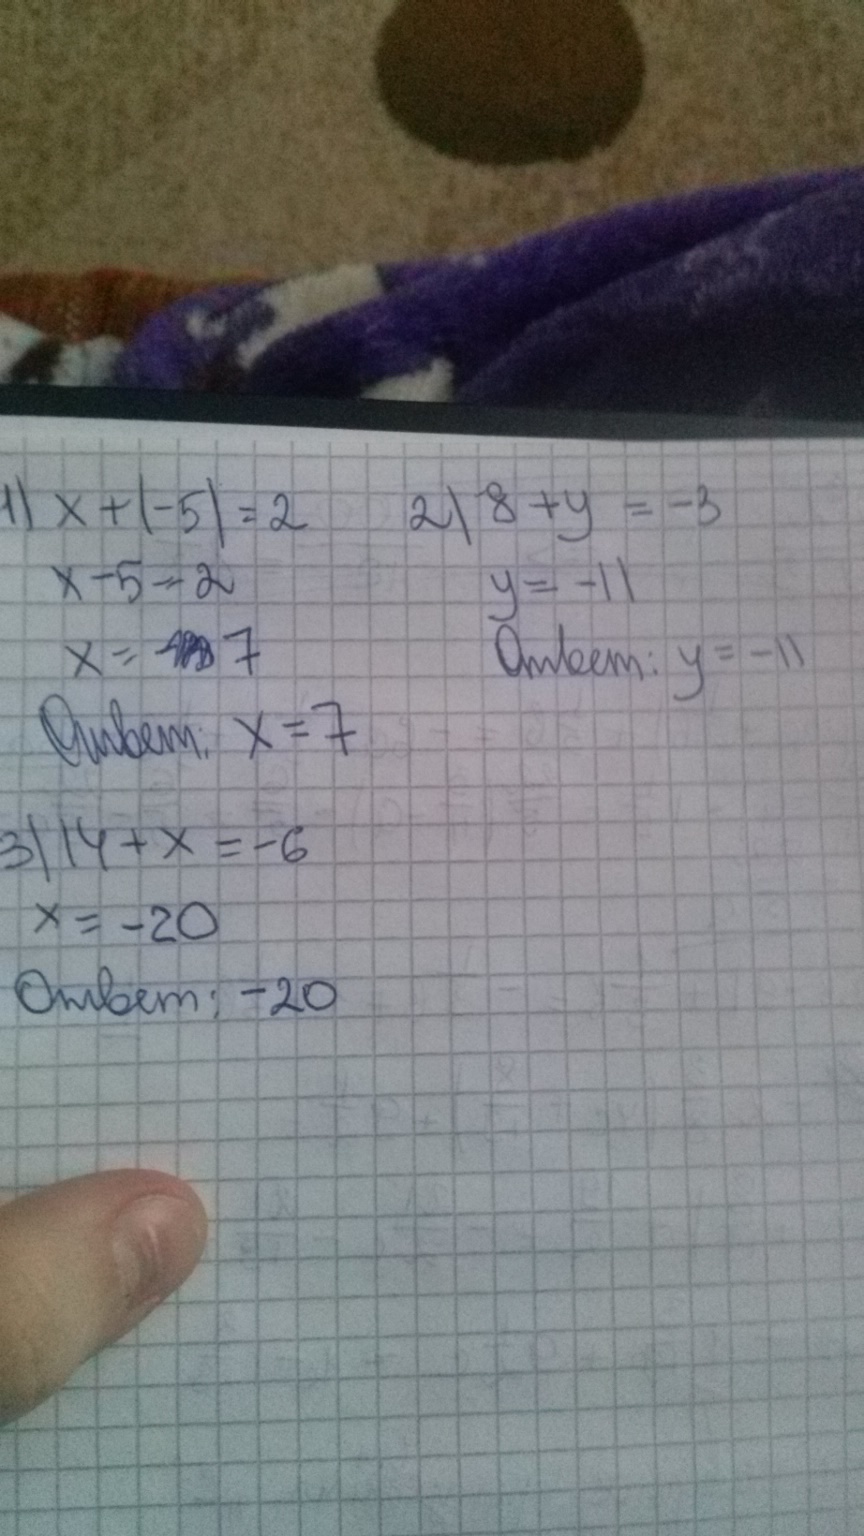 1) x + (-5) = 2
x - 5 = 2
x = 7
Ответ: x = 7
2) 8 + y = -3
y = -11
Ответ: y = -11
3) 14 + x = -6
x = -20
Ответ: -20